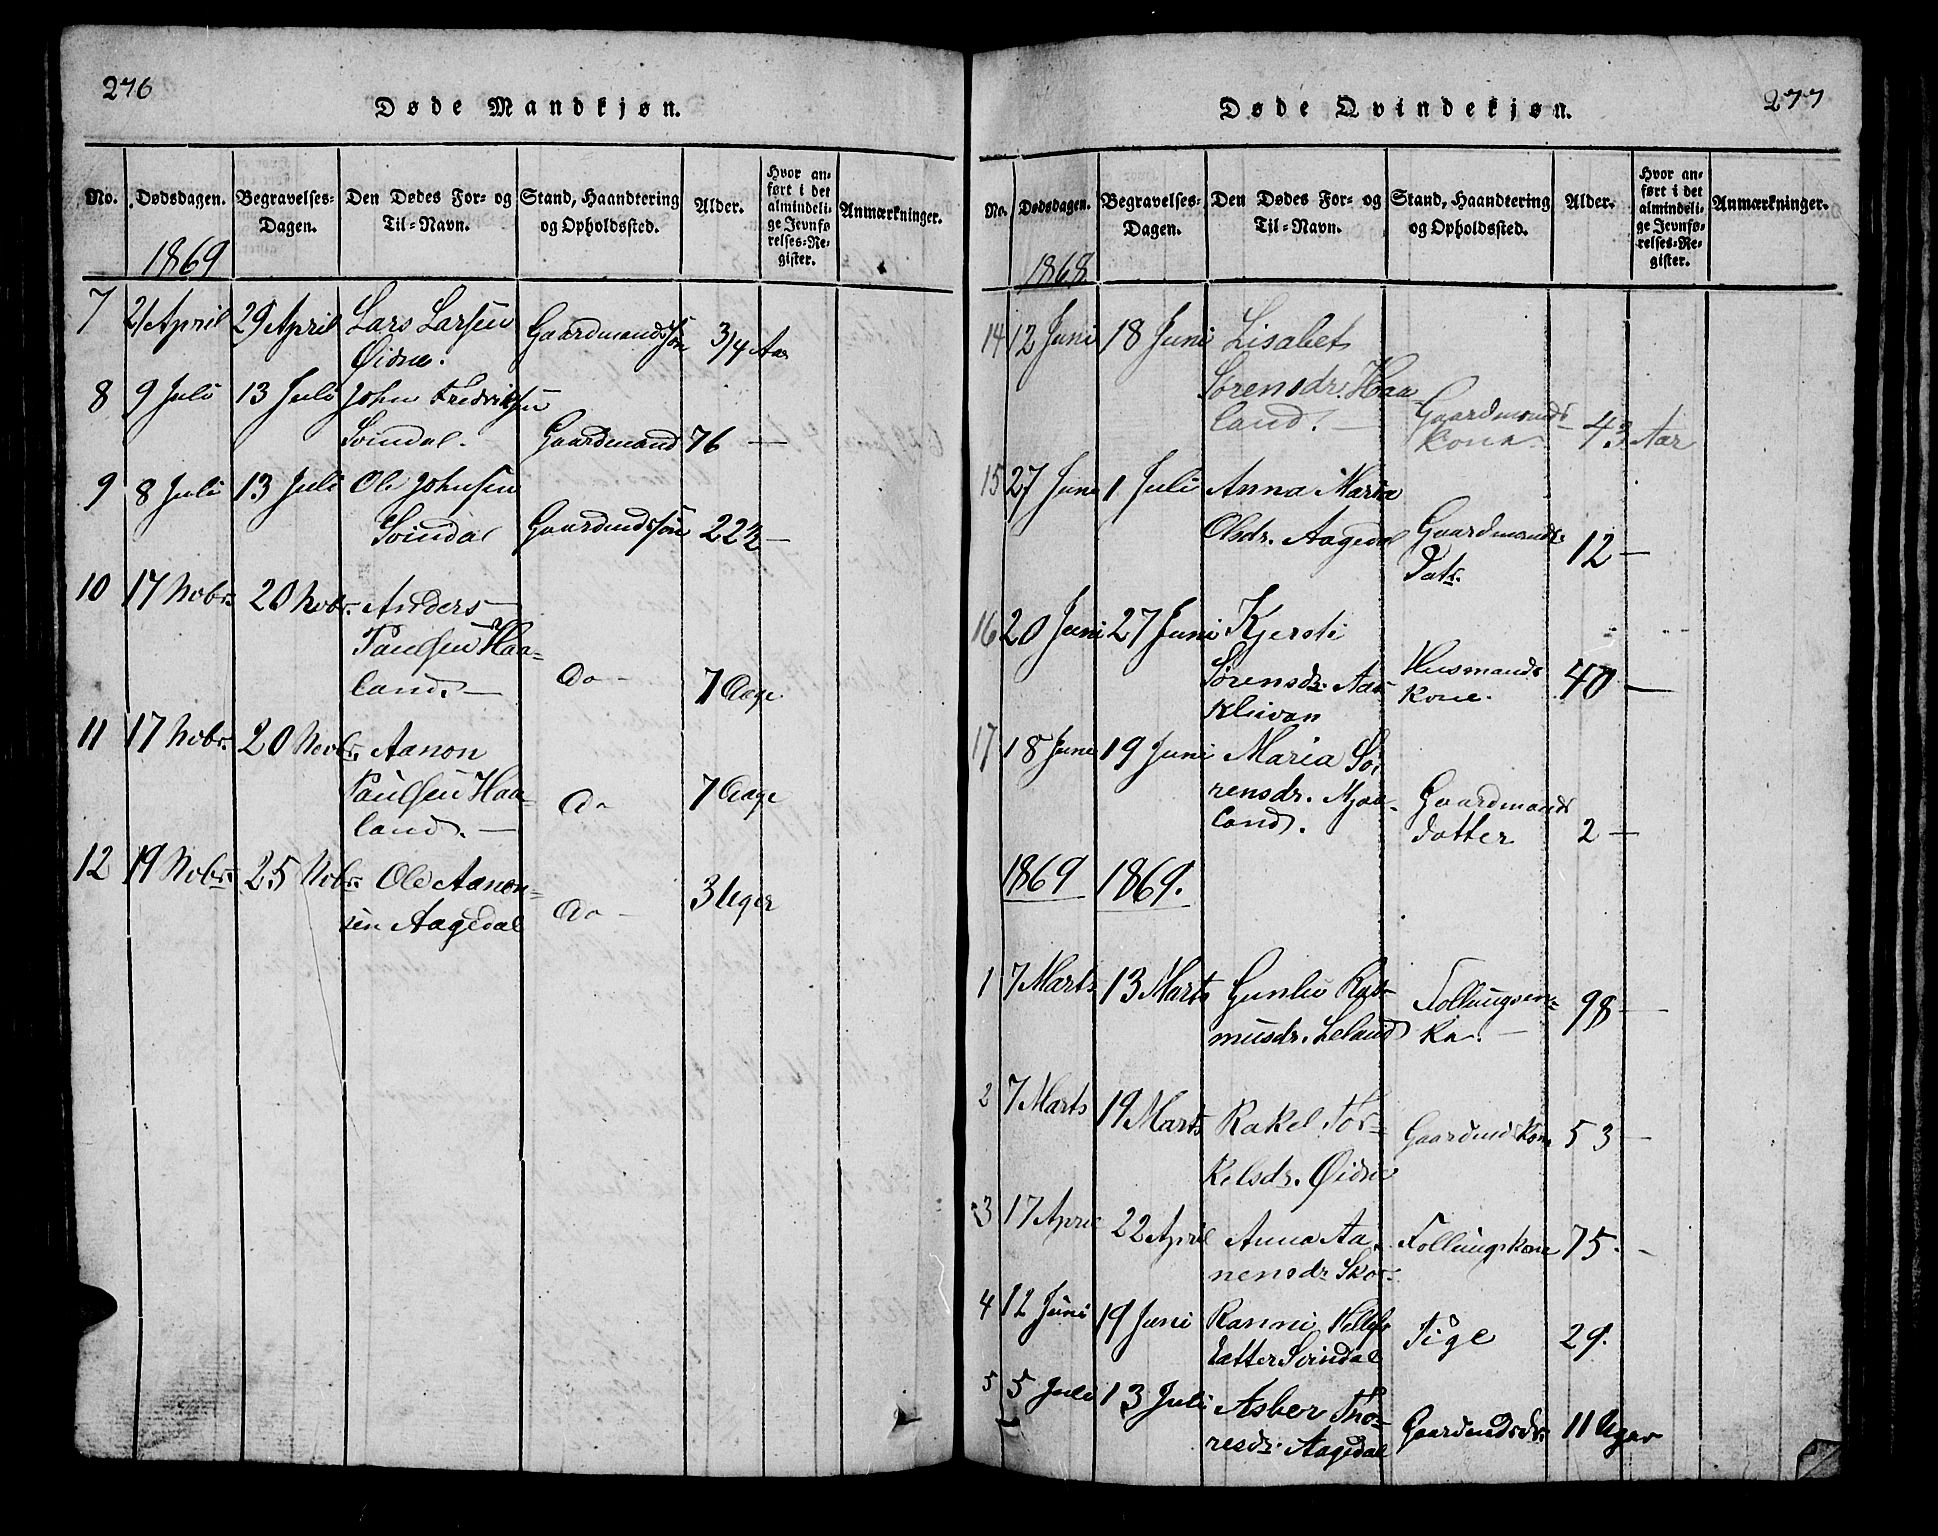 276
Døde Mandkjøn.
No. Dødsdagen. Begravelses-Dagen. Den Dødes For- og Til-Navn. Stand, Haandtering og Opholdssted. Alder. Hvor anført i det almindelige Jevnførelses-Register. Anmærkninger.
1869
7 21 April 29 April Lars Larsen Gaardmandssøn 3/4 Aar
Øidne.
8 9 Juli 13 Juli John Fredriksen
Svindal. Gaardmand 76 —
9 8 Juli 13 Juli Ole Johnsen
Svindal Gaardmdssøn 22 1/2 —
10 17 Nobr. 20 Nobr. Anders
Paulsen Haa-
land. — do — 7 Dage
11 17 Nobr. 20 Novbr. Aanon
Paulsen Haa-
land. — do 7 Dage
12 19 Nobr. 25 Nobr. Ole Aanon-
sen Aagedal do — 3 Uger
277
Døde Qvindekjøn.
No. Dødsdagen. Begravelses-Dagen. Den Dødes For- og Til-Navn. Stand, Haandtering og Opholdssted. Alder. Hvor anført i det almindelige Jevnførelses-Register. Anmærkninger.
1868
14 12 Juni 18 Juni Lisabet
Sørensdr. Haa-
land. — Gaardmands-
kone. 43 Aar
15 27 Juni 1 Juli Anna Maria
Olsdr. Aagedal Gaardmands-
Datr. 12 —
16 20 Juni 27 Juni Kjersti
Sørensdr. Aas Husmands
Klivan kone. 40 —
17 18 Juni 19 Juni Maria Sø-
rensdr. Mjaa- Gaardmands
land. datter 2 —
1869 1869.
1 7 Marts 13 Marts Gunlu Ras- Follingsen- 98 —
musdr. Leland ka. —
2 7 Marts 19 Marts Rakel Tor- Gaardmds Kone 53 —
Kelsdr. Øidne
3 17 April 22 April Anna Aa- Follingskone 75. —
nensdr. Skor
4 12 Juni 19 Juni Ranni
datter Svindal Pige 29.
5 5 Juli 13 Juli Asber Tho-
resdr. Aagedal Gaardmdsdr. 11 Uger